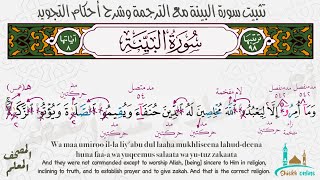 تثبيت سورة البينة مع الترجمة وشرح أحكام التجويد
ترتيبها ٩٨
سُورَةُ الْبَيِّنَةِ
آياتها ٨
وَمَا أُمِرُوا إِلَّا لِيَعْبُدُوا اللَّهَ مُخْلِصِينَ لَهُ الدِّينَ حُنَفَاءَ وَيُقِيمُوا الصَّلَاةَ وَيُؤْتُوا الزَّكَاةَ
Wa maa umiroo il-la liy'abu dul laaha mukhliseena lahud-deena
huna faa-a wa yuqeemus salaata wa yu-tuz zakaata
And they were not commanded except to worship Allah, [being] sincere to Him in religion,
inclining to truth, and to establish prayer and to give zakah. And that is the correct religion.
المصحف المعلم
Sheikh online